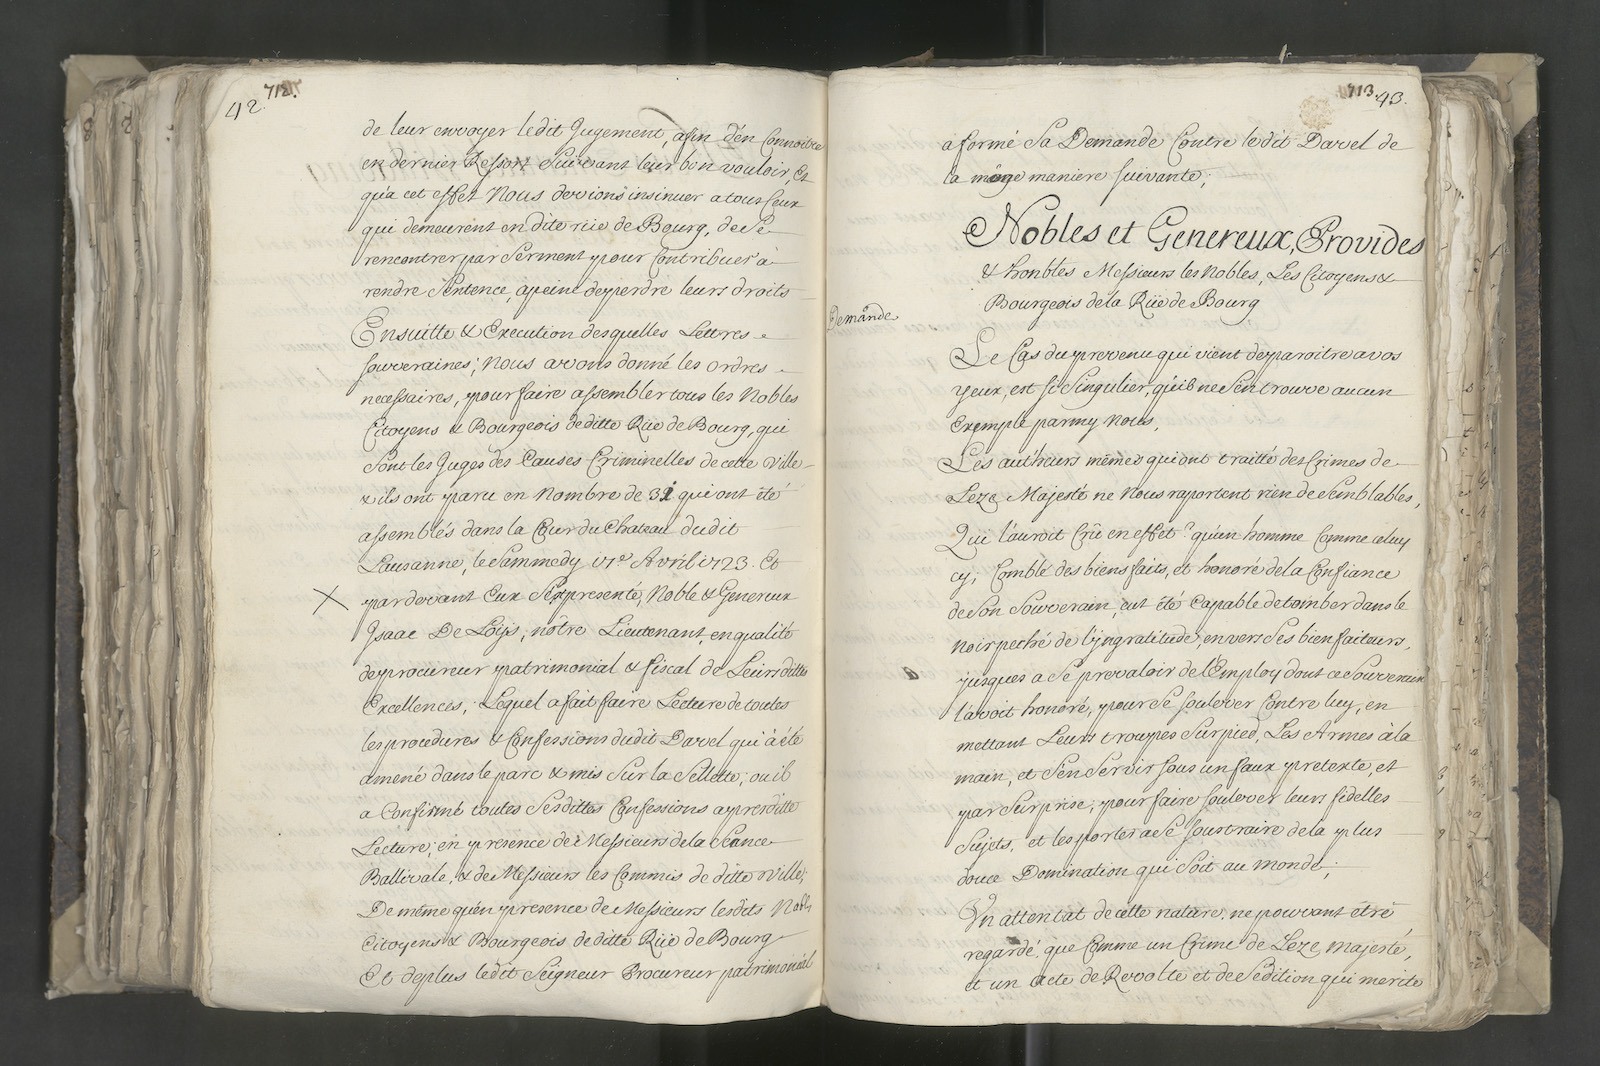 42. 712.
de leur envoyer ledit Jugement, afin d'en Connoitre
en dernier Ressort Suivant leur bon vouloir, Et
qu'a cet effet Nous devions insinuer a tous Ceux
qui demeurent en dite rüe de Bourg, de Se
rencontrer par Serment pour Contribuer à
rendre Sentence, a peine de perdre leurs droits
Ensuitte & Execution desquelles Lettres
Souveraines; Nous avons donné les ordres
necessaires, pour faire assembler tous les Nobles
Citoyens & Bourgeois de ditte Rüe de Bourg, qui
Sont les Juges des Causes Criminelles de cette Ville
& ils ont paru en Nombre de 31 qui ont été
assemblés dans la Cour du Chateau dudit
Lausanne, le Sammedy 17e Avril 1723. Et
par devant Eux S'est presenté, Noble & Genereux
Isaac De Loÿs, nôtre Lieutenant, en qualité
de procureur patrimonial & fiscal de Leurs dittes
Excellences, Lequel a fait faire Lecture de toutes
les procedures & Confessions dudit Davel qui à été
amené dans le parc & mis Sur la Sellette; ou il
a Confirmé toutes Ses dittes Confessions apres ditte
Lecture; en presence de Messieurs de la Seance
Ballivale, & de Messieurs les Commis de ditte Ville;
De même qu'en presence de Messieurs lesdits Nobles
Citoyens & Bourgeois de ditte Rüe de Bourg
Et de plus ledit Seigneur Procureur patrimonial
713. 43.
a formé Sa Demande Contre ledit Davel de
la maniere suivante;
Nobles et Genereux, Provides
& honbles Messieurs les Nobles, Les Citoyens &
Bourgeois de la Rüe de Bourg
Demande
Le Cas du prevenu qui vient de paroitre a vos
yeux, est Si Singulier, qu'il ne S'en trouve aucun
Exemple parmy Nous,
Les autheurs mêmes qui ont traitté des Crimes de
Leze Majesté ne Nous raportent rien de Semblables,
Qui l'auroit Crû en effét? qu'un homme Comme celuy
cy, Comblé des biensfaits, et honoré de la Confiance
de Son Souverain, eut été Capable de tomber dans le
Noir peché de l'ingratitude, envers Ses bienfaiteurs,
jusques a Se prevaloir de l'Employ dont ce Souverain
l'avoit honoré, pour Se Soulever Contre luy, en
mettant Leurs troupes Sur pied, Les Armes à la
main, et S'en Servir Sous un faux pretexte, et
par Surprise; pour faire Soulever leurs fidelles
Sujets, et les porter a Se Soustraire de la plus
douce Domination qui Soit au Monde;
Un attentat de cette nature, ne pouvant etre
regardé, que Comme un Crime de Leze Majesté,
et un Acte de Revolte et de Sedition qui merite